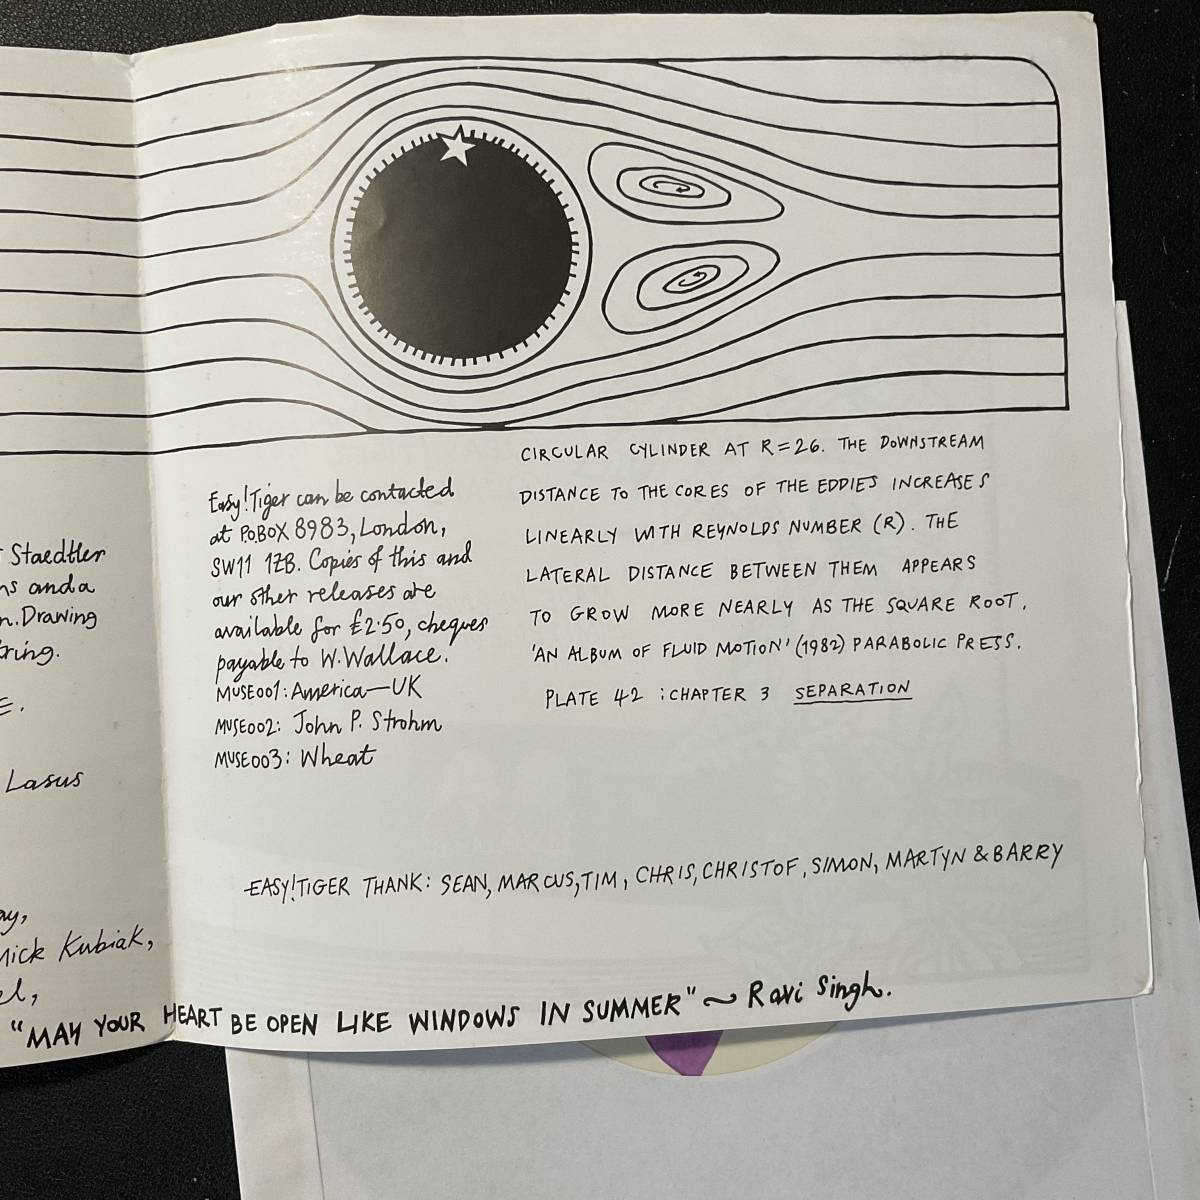 CIRCULAR CYLINDER AT R=26. THE DOWNSTREAM
DISTANCE TO THE CORES OF THE EDDIES INCREASES
LINEARLY WITH REYNOLDS NUMBER (R). THE
LATERAL DISTANCE BETWEEN THEM APPEARS
TO GROW MORE NEARLY AS THE SQUARE ROOT.
'AN ALBUM OF FLUID MOTION' (1982) PARABOLIC PRESS.
PLATE 42 : CHAPTER 3 SEPARATION
Easy!Tiger can be contacted
at POBOX 8983, London,
SW11 1ZB. Copies of this and
our other releases are
available for £2.50, cheques
payable to W.Wallace.
MUSE001: America—UK
MUSE002: John P. Strohm
MUSE003: Wheat
Staedtler
and a
Drawing
Lasus
Kubiak,
EASY!TIGER THANK: SEAN, MARCUS, TIM, CHRIS, CHRISTOF, SIMON, MARTYN & BARRY
"MAY YOUR HEART BE OPEN LIKE WINDOWS IN SUMMER" ~ Ravi Singh.